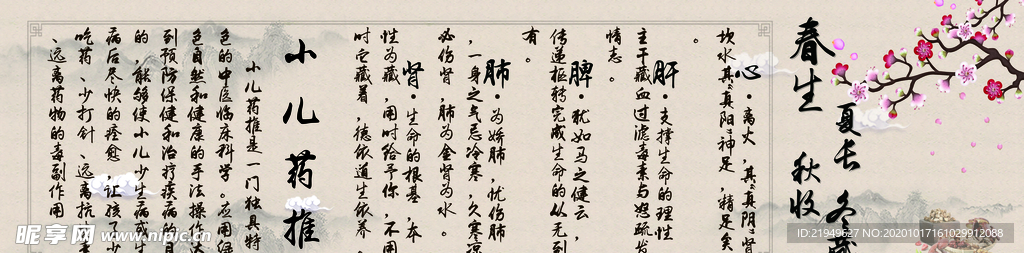 春生 秋收
夏长 冬藏
心·离火，其真阴肾
坎水其真阳神足，精足矣
。
肝·支撑生命的理性
主干藏血过滤毒素与怒疏发
情志。
脾·犹如马之健云，
传递枢转完成生命的从无到
有。
肺·为娇肺，忧伤肺
，一身之气忌冷寒，久寒凉
必伤肾，肺为金肾为水。
肾·生命的根基，本
性为藏，用时给予你，不用
时它藏着，德依道生依养
小儿药推
小儿药推是一门独具特
色的中医临床科学。应用绿
色自然和健康的手法操作达
到预防保健和治疗疾病的目
的，能够使小儿少生病或
病后尽快的痊愈，让孩
吃药、少打针、远离抗
、远离药物的毒副作用
昵享网 www.nipic.cn
ID:21949627 NO:20201017161029912088